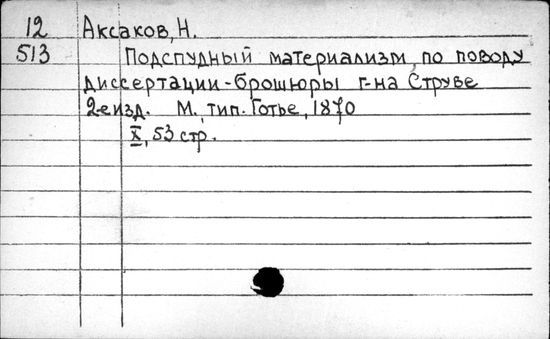 12 Аксаков, Н.
513 Подспудный материализм, по поводу
диссертации-брошюры г-на Струве
2-е изд. М., тип. Готье, 1870
X, 53 стр.